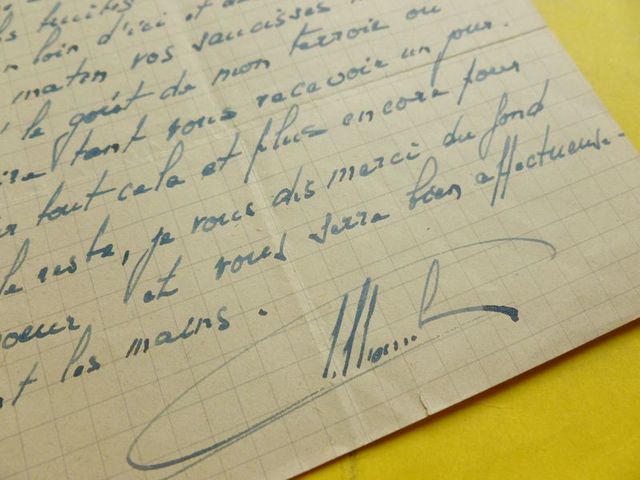 truites
loin d'ici et
matin vos saucisses
le goût de mon terroir ou
tant vous recevoir un jour.
tout cela et plus encore pour
le reste, je vous dis merci du fond
coeur et vous serre bien affectueuse-
nt les mains.